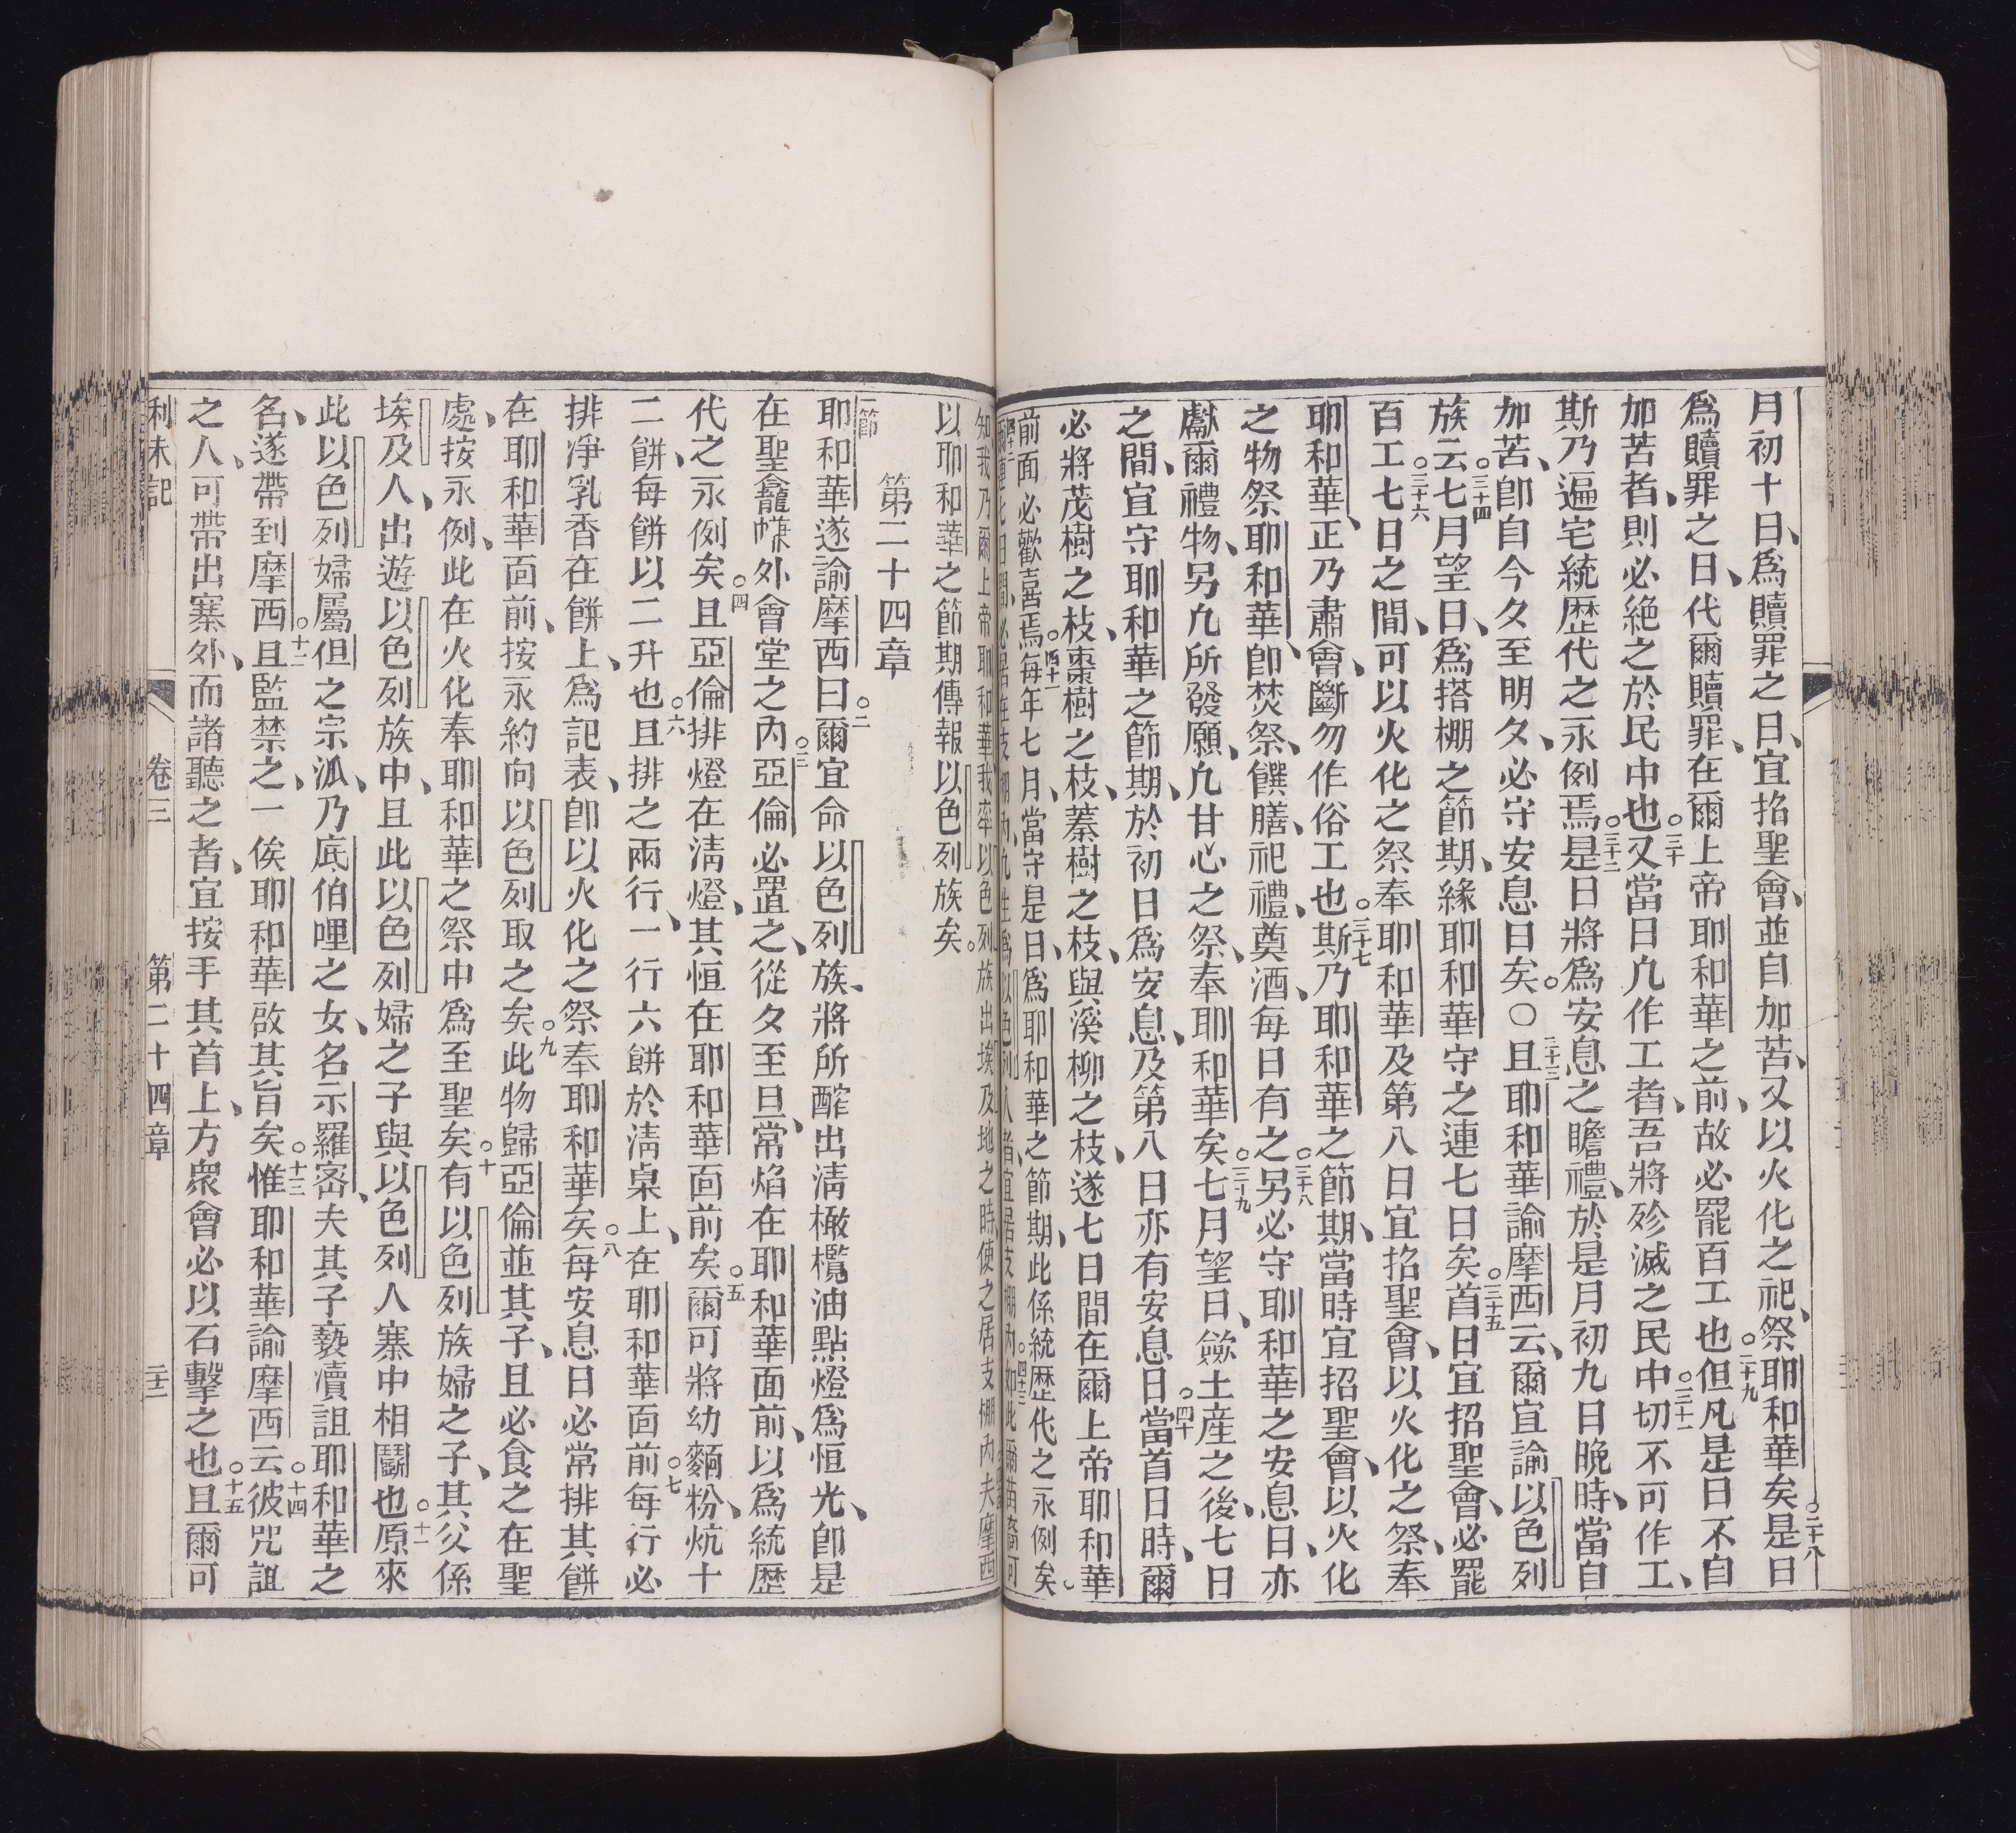 月初十日、爲贖罪之日、宜招聖會、並自加苦、又以火化之祀、祭耶和華矣○二十八是日
爲贖罪之日、代爾贖罪、在爾上帝耶和華之前、故必罷百工也○二十九但凡是日不自
加苦者、則必絶之於民中也○三十又當日凢作工者、吾將殄滅之民中○三十一切不可作工、
斯乃遍宅統歷代之永例焉○三十二是日將爲安息之瞻禮、於是月初九日晚時、當自
加苦、卽自今夕至明夕、必守安息日矣。○三十三且耶和華諭摩西云、爾宜諭以色列
族云○三十四七月望日、爲搭棚之節期、緣耶和華守之連七日矣○三十五首日宜招聖會、必罷
百工○三十六七日之間、可以火化之祭奉耶和華及第八日宜招聖會、以火化之祭、奉
耶和華、正乃肅會、斷勿作俗工也○三十七斯乃耶和華之節期、當時宜招聖會、以火化
之物祭耶和華、卽焚祭、饌膳、祀禮、奠酒、每日有之○三十八另必守耶和華之安息日、亦
獻爾禮物、另凢所發願、凢甘心之祭、奉耶和華矣○三十九七月望日、斂土産之後、七日
之間、宜守耶和華之節期、於初日爲安息、及第八日亦有安息日○四十當首日時、爾
必將茂樹之枝、棗樹之枝、蓁樹之枝、與溪柳之枝、遂七日間在爾上帝耶和華
前面必歡喜焉○四十一每年七月、當守是日、爲耶和華之節期、此係統歷代之永例矣。
知我乃爾上帝耶和華、我率以色列族出埃及地之時、使之居支棚內夫摩西
以耶和華之節期傳報以色列族矣。
第二十四章
一節耶和華遂諭摩西曰○二爾宜命以色列族、將所醡出淸橄欖油點燈爲恒光、卽是
在聖龕㡘外會堂之內○三亞倫必置之、從夕至旦、常焰在耶和華面前、以爲統歷
代之永例矣○四且亞倫排燈在淸燈、其恒在耶和華面前矣○五爾可將幼麵粉、炕十
二餅、每餅以二升也○六且排之兩行、一行六餅於淸桌上、在耶和華面前○七每行必
排凈乳香在餅上、爲記表、卽以火化之祭奉耶和華矣○八每安息日必常排其餅
在耶和華面前、按永約向以色列取之矣○九此物歸亞倫並其子、且必食之在聖
處、按永例、此在火化奉耶和華之祭中爲至聖矣○十有以色列族婦之子、其父係
埃及人、出遊以色列族中、且此以色列婦之子與以色列人寨中相鬬也○十一原來
此以色列婦屬但之宗派、乃底伯哩之女、名示羅密、夫其子褻瀆詛耶和華之
名、遂帶到摩西○十二且監禁之、一俟耶和華啟其旨矣○十三惟耶和華諭摩西云○十四彼咒詛
之人、可帶出寨外、而諸聽之者、宜按手其首上、方衆會必以石擊之也○十五且爾可
利未記　卷三　第二十四章